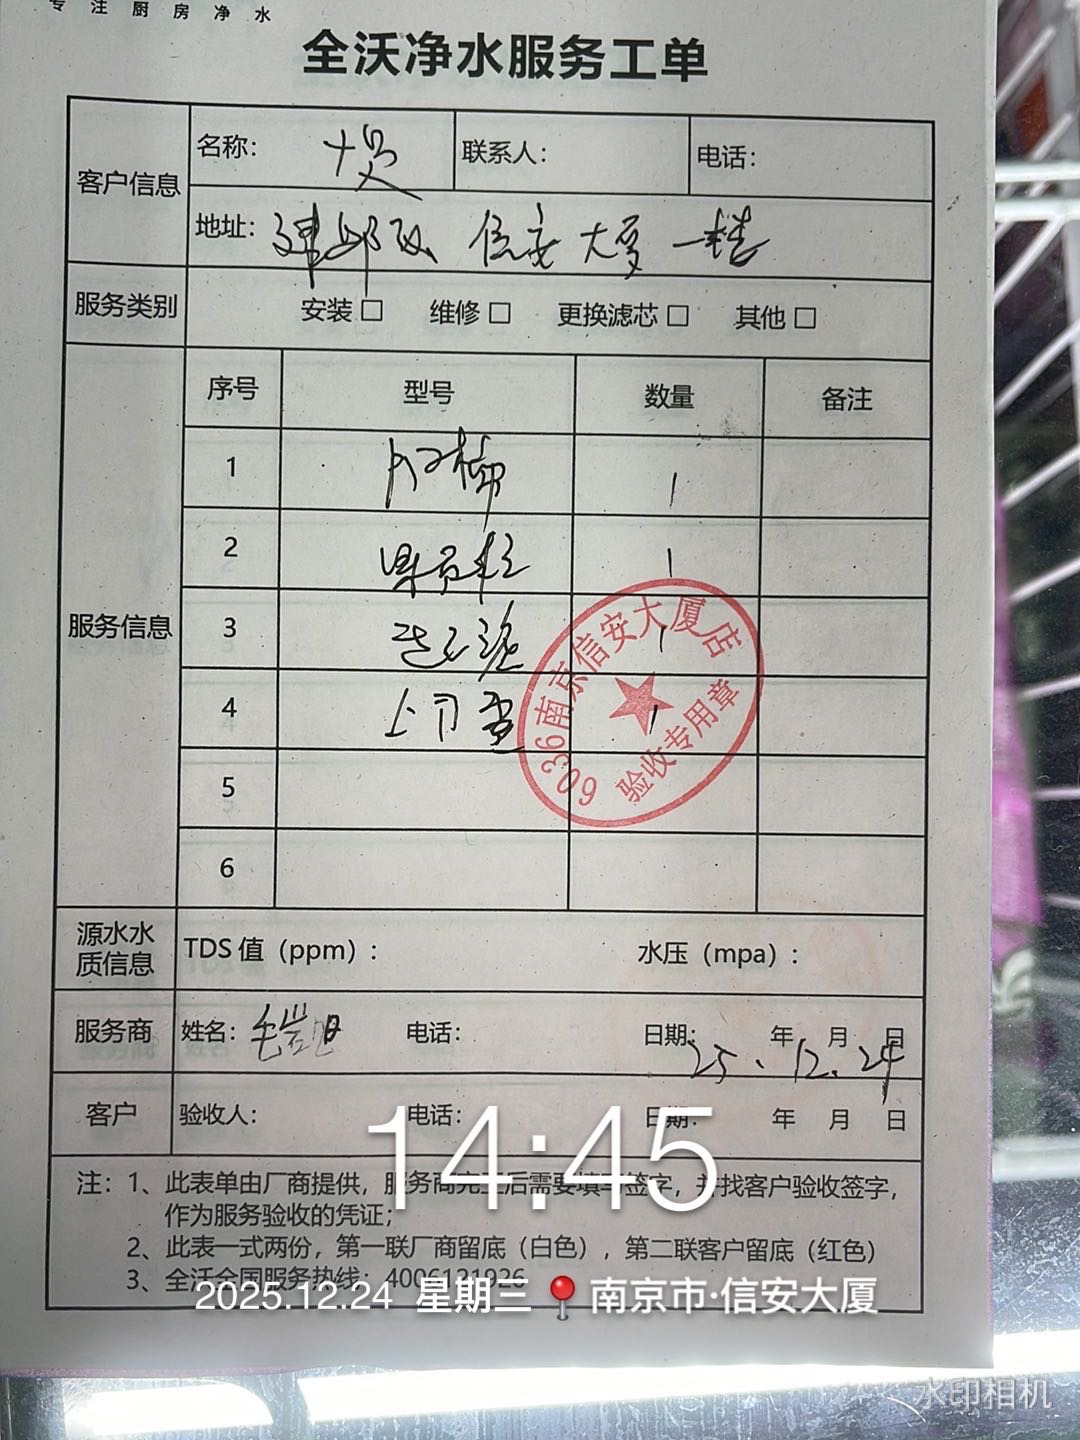 专注厨房净水
全沃净水服务工单
客户信息
名称： 联系人： 电话：
地址：建邺区 信安大厦一楼
服务类别 安装□ 维修□ 更换滤芯□ 其他□
服务信息
序号 型号 数量 备注
1 1
2 1
3 1
4 上门费 1
5
6
6036南京信安大厦店
验收专用章
源水水质信息 TDS 值（ppm）： 水压（mpa）：
服务商 姓名： 电话： 日期： 年 月 日
25.12.24
客户 验收人： 电话： 日期： 年 月 日
14:45
注：1、此表单由厂商提供，服务商完工后需要填写签字，并找客户验收签字，
作为服务验收的凭证；
2、此表一式两份，第一联厂商留底（白色），第二联客户留底（红色）
3、全沃全国服务热线：4006131926
2025.12.24 星期三 南京市·信安大厦
水印相机